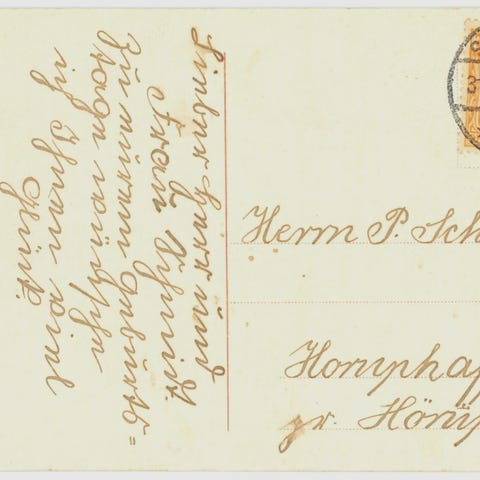 Lieber Herr und
Frau Schmidt.
Zu eurem Geburts=
tage wünsche
ich Ihnen viel
Glück.
Herrn P. Sch
Horuphaf
pr. Hörup